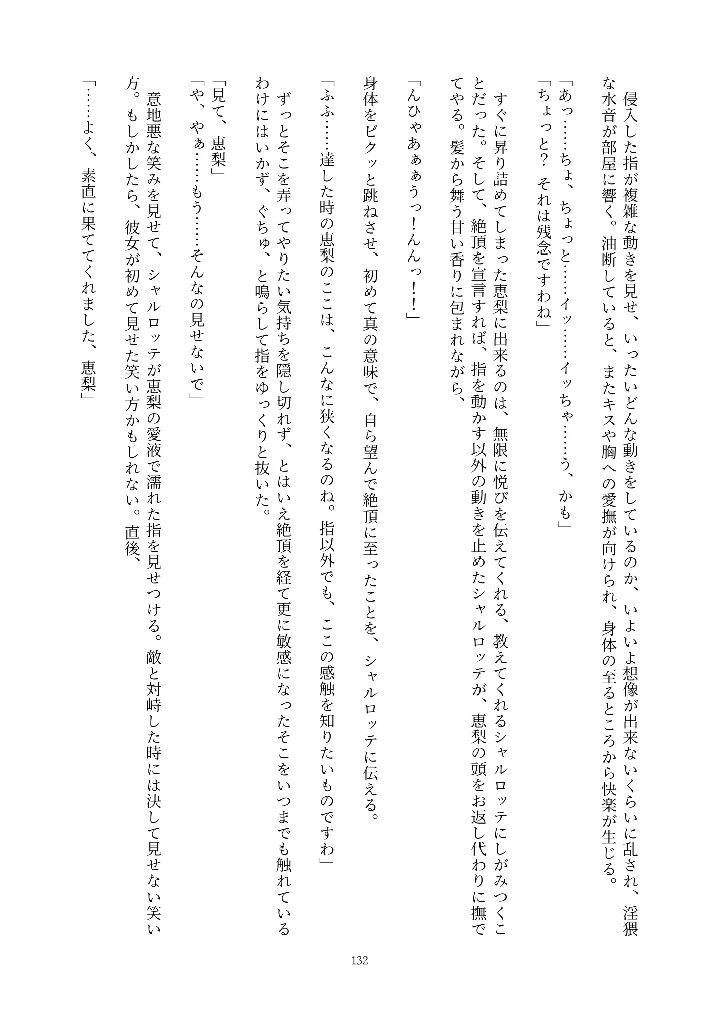 侵入した指が複雑な動きを見せ、いったいどんな動きをしているのか、いよいよ想像が出来ないくらいに乱され、淫猥
な水音が部屋に響く。油断していると、またキスや胸への愛撫が向けられ、身体の至るところから快楽が生じる。
「あっ……ちょ、ちょっと……イッ……イッちゃ……う、かも」
「ちょっと？ それは残念ですわね」
すぐに昇り詰めてしまった恵梨に出来るのは、無限に悦びを伝えてくれる、教えてくれるシャルロッテにしがみつくこ
とだった。そして、絶頂を宣言すれば、指を動かす以外の動きを止めたシャルロッテが、恵梨の頭をお返し代わりに撫で
てやる。髪から舞う甘い香りに包まれながら、
「んひゃあぁぁうっ！んんっ！！」
身体をビクッと跳ねさせ、初めて真の意味で、自ら望んで絶頂に至ったことを、シャルロッテに伝える。
「ふふ……達した時の恵梨のここは、こんなに狭くなるのね。指以外でも、ここの感触を知りたいものですわ」
ずっとそこを弄ってやりたい気持ちを隠し切れず、とはいえ絶頂を経て更に敏感になったそこをいつまでも触れている
わけにはいかず、ぐちゅ、と鳴らして指をゆっくりと抜いた。
「見て、恵梨」
「や、やぁ……もう……そんなの見せないで」
意地悪な笑みを見せて、シャルロッテが恵梨の愛液で濡れた指を見せつける。敵と対峙した時には決して見せない笑い
方。もしかしたら、彼女が初めて見せた笑い方かもしれない。直後、
「……よく、素直に果ててくれました、恵梨」
132